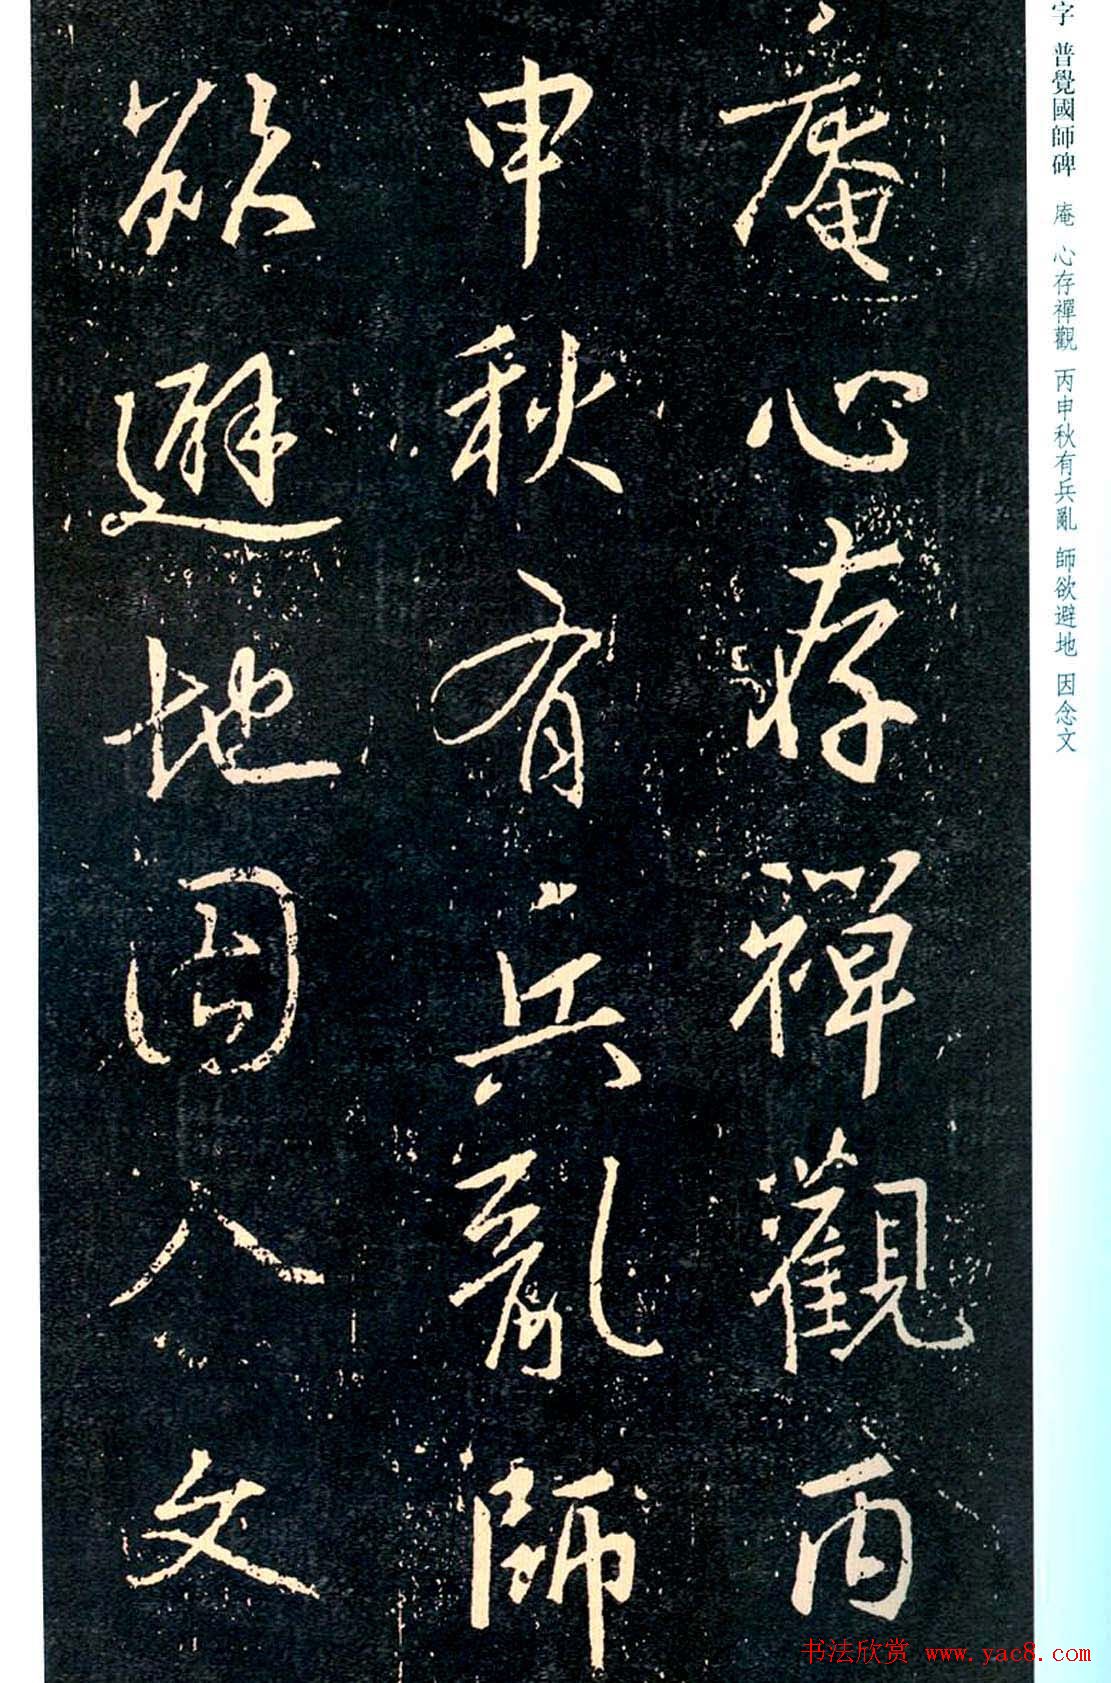 庵心存禪觀丙
申秋有兵亂師
欲避地因念文
字 普覺國師碑 庵 心存禪觀 丙申秋有兵亂 師欲避地 因念文
书法欣赏 www.yac8.com